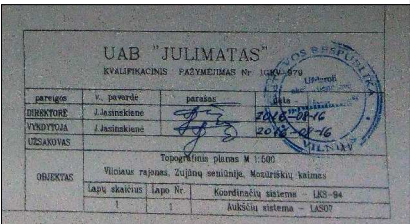 UAB "JULIMATAS"
KVALIFIKACINIS PAŽYMĖJIMAS Nr 1GKV-979
pareigos V., pavardė parašas data
DIREKTORĖ J.Jasinskienė 2016-08-16
VYKDYTOJA J.Jasinskienė 2016-08-16
UŽSAKOVAS
OBJEKTAS
Topografinis planas M 1:500
Vilniaus rajonas, Zujūnų seniūnija, Mozūriškių kaimas
Lapų skaičius Lapo Nr. Koordinačių sistema - LKS-94
1 1 Aukščių sistema - LAS07
LIETUVOS RESPUBLIKA
VILNIUS